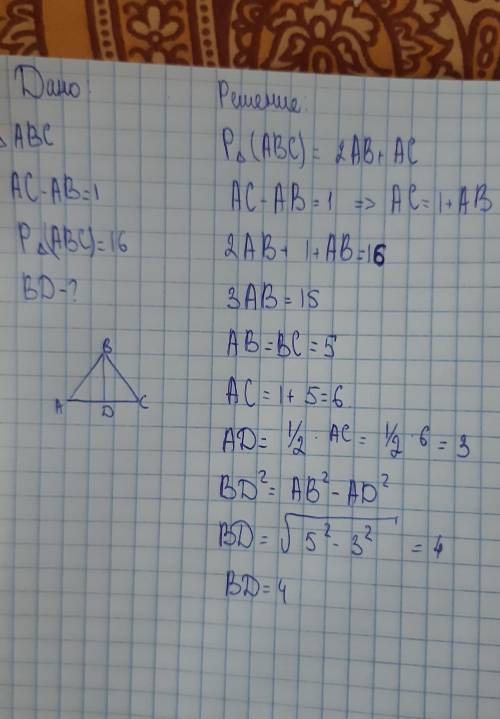 Дано:
△ ABC
AC-AB=1
P△(ABC)=16
BD-?
B
A D C
Решение.
P△(ABC)= 2AB+ AC
AC-AB=1 => AC=1+AB
2AB+ 1+AB=16
3AB=15
AB=BC=5
AC=1+5=6
AD= 1/2 · AC= 1/2 · 6 = 3
BD²= AB²-AD²
BD= √5²-3² =4
BD=4